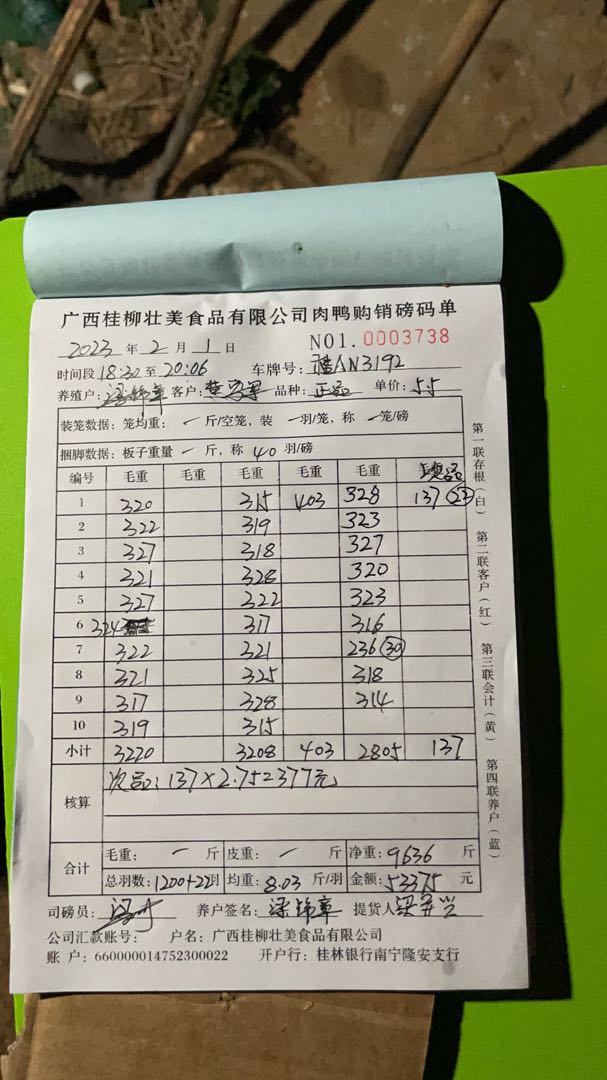 广西桂柳壮美食品有限公司肉鸭购销磅码单
2023 年 2 月 1 日 NO1. 0003738
时间段 18:30 至 20:06 车牌号: 桂AN3192
养殖户: 梁锦章 客户: 品种: 正品 单价: 5.5
装笼数据: 笼均重: 一 斤/空笼, 装 一 羽/笼, 称 一 笼/磅
捆脚数据: 板子重量 一 斤, 称 40 羽/磅
编号 毛重 毛重 毛重 毛重 毛重 次品
1 320 315 403 328 137 (22)
2 322 319 323
3 327 318 327
4 321 328 320
5 327 322 323
6 324 317 316
7 322 321 236 (30)
8 321 325 318
9 317 328 314
10 319 315
小计 3220 3208 403 2805 137
核算 次品: 137×2.75=377元
合计 毛重: 一 斤 皮重: 一 斤 净重: 9636 斤
总羽数: 1200+22 羽 均重: 8.03 斤/羽 金额: 53375 元
司磅员: 养户签名: 梁锦章 提货人
公司汇款账号: 户名: 广西桂柳壮美食品有限公司
账 户: 660000014752300022 开户行: 桂林银行南宁隆安支行
第一联存根(白) 第二联客户(红) 第三联会计(黄) 第四联养户(蓝)